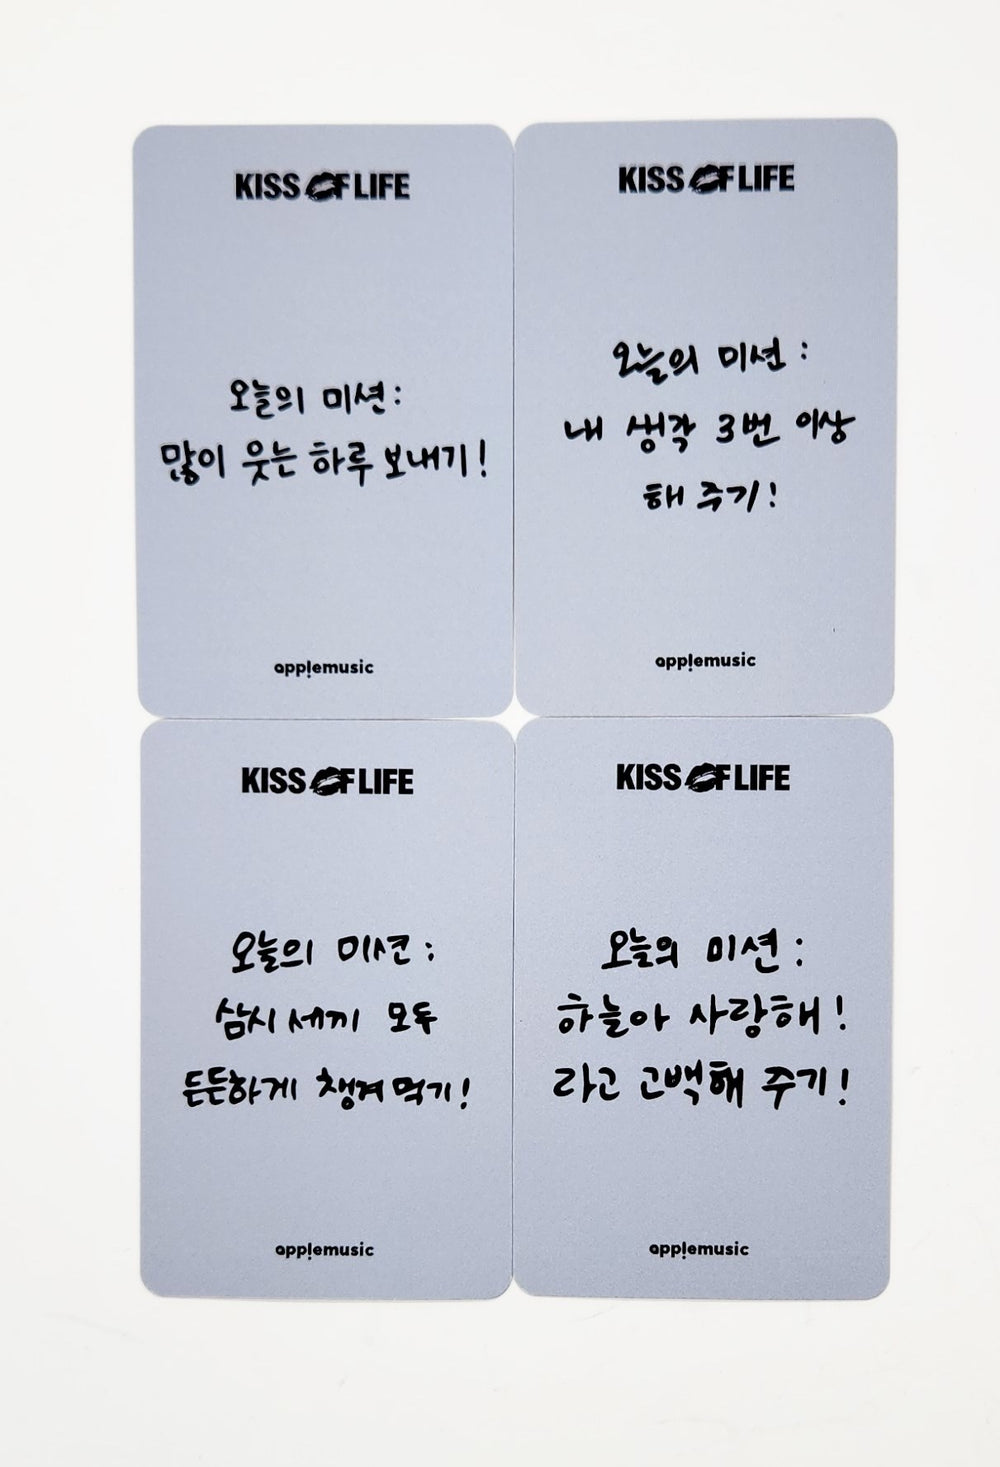 KISS OF LIFE
오늘의 미션:
많이 웃는 하루 보내기!
applemusic
KISS OF LIFE
오늘의 미션:
내 생각 3번 이상
해 주기!
applemusic
KISS OF LIFE
오늘의 미션:
삼시세끼 모두
든든하게 챙겨먹기!
applemusic
KISS OF LIFE
오늘의 미션:
하늘아 사랑해!
라고 고백해 주기!
applemusic